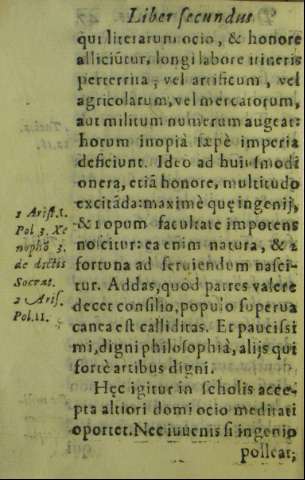 Liber secundus
qui literarum ocio, & honore
alliciūtur, longi labore itineris
perterrita, vel artificum, vel
agricolarum, vel mercatorum,
aut militum numerum augeāt:
horum inopiâ sæpè imperia
deficiunt. Ideo ad huiusmodi
onera, etiā honore, multitudo
excitāda: maximè quę ingenij,
& 1 opum facultate impotens
noscitur: ea enim natura, & 2
fortuna ad seruiendum nasci-
tur. Addas, quòd patres valere
decet consilio, populo superua
canea est calliditas. Et paucissi
mi, digni philosophiâ, alijs qui
fortè artibus digni.
Hęc igitur in scholis acce-
pta altiori domi ocio meditati
oportet. Nec iuuenis si ingenio
polleat;
1 Arist. 1.
Pol 3. Xe
nophō 3.
de dictis
Socrat.
2 Aris.
Pol. 11.